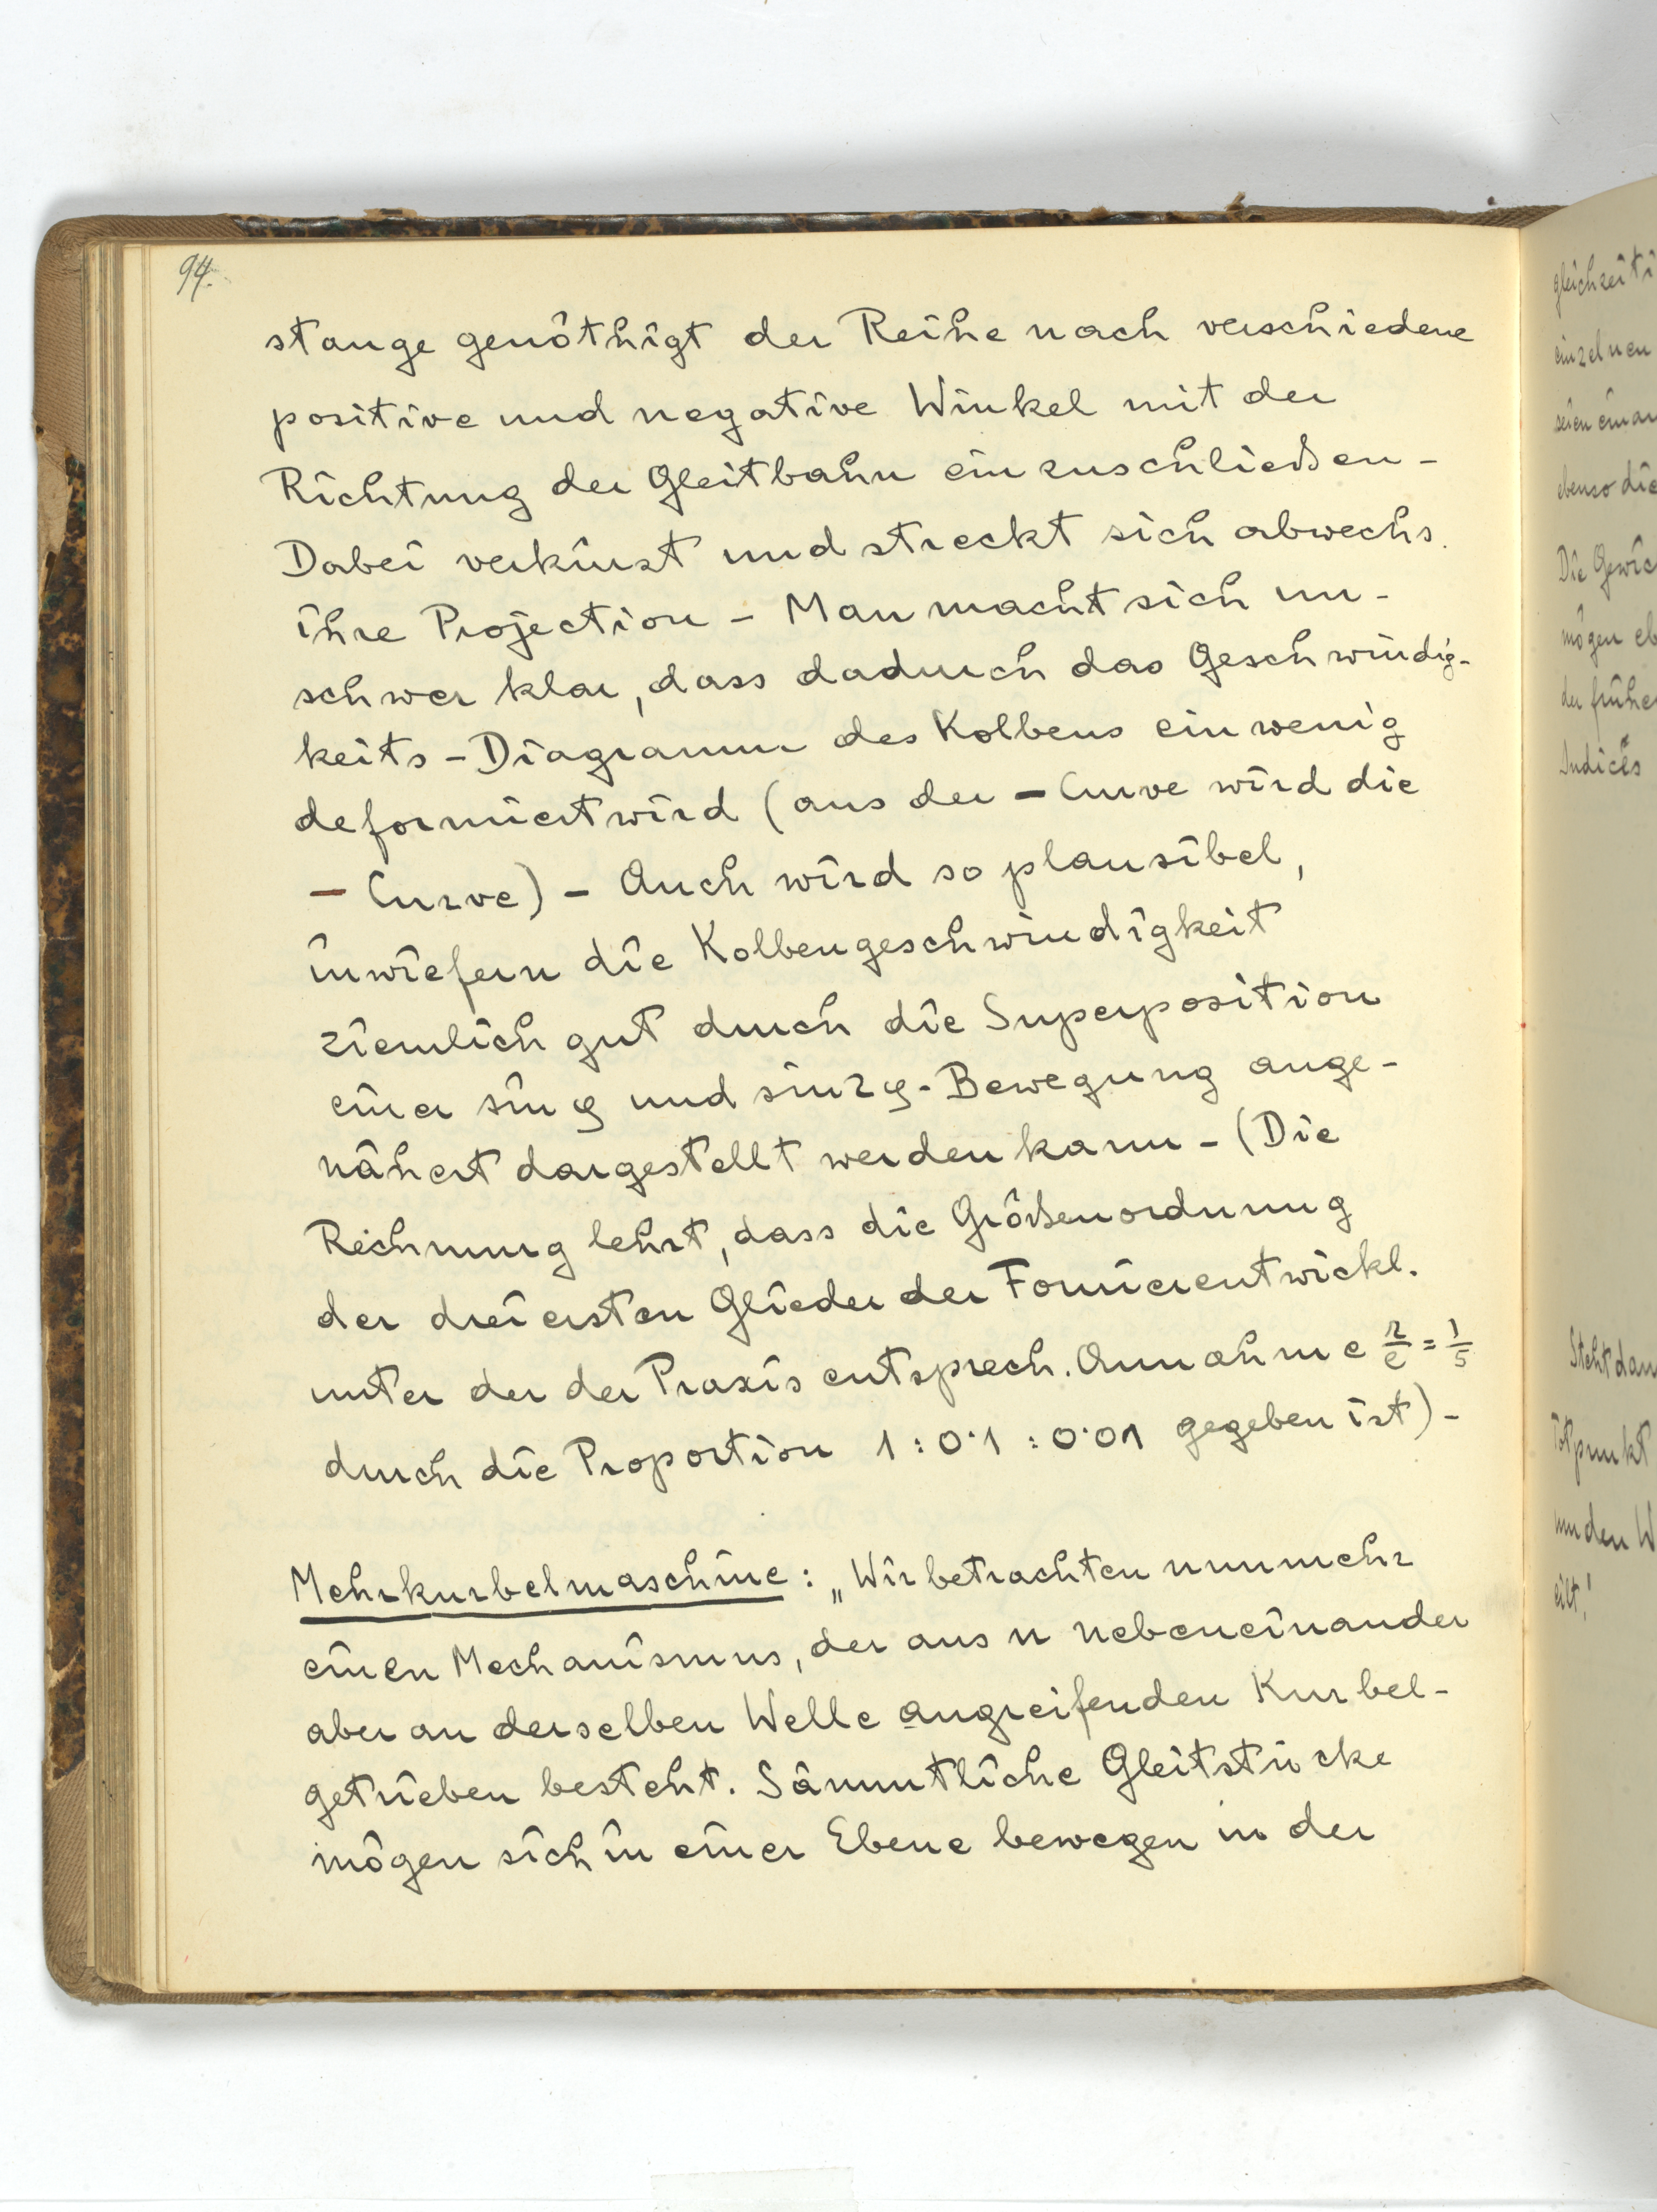 94.
stange genöthigt der Reihe nach verschiedene
positive und negative Winkel mit der
Richtung der Gleitbahn einzuschließen -
Dabei verkürzt und streckt sich abwechs.
ihre Projection - Man macht sich un-
schwer klar, dass dadurch das Geschwindig-
keits - Diagramm des Kolbens ein wenig
deformiert wird (aus der - Curve wird die
- Curve) - Auch wird so plausibel,
inwiefern die Kolbengeschwindigkeit
ziemlich gut durch die Superposition
einer sin φ und sin 2φ - Bewegung ange-
nähert dargestellt werden kann - (Die
Rechnung lehrt, dass die Größenordnung
der drei ersten Glieder der Fourierentwickl.
unter der der Praxis entsprech. Annahme r/e = 1/5
durch die Proportion 1 : 0·1 : 0·01 gegeben ist) -
Mehrkurbelmaschine : „Wir betrachten nunmehr
einen Mechanismus, der aus n nebeneinander
aber an derselben Welle angreifenden Kurbel-
getrieben besteht. Sämmtliche Gleitstücke
mögen sich in einer Ebene bewegen in der
gleichzeiti
einzelnen
seien einan
ebenso die
Die Gewic
mögen eb
der frühe
Indices
Steht dan
Totpunkt
nun den W
eilt!